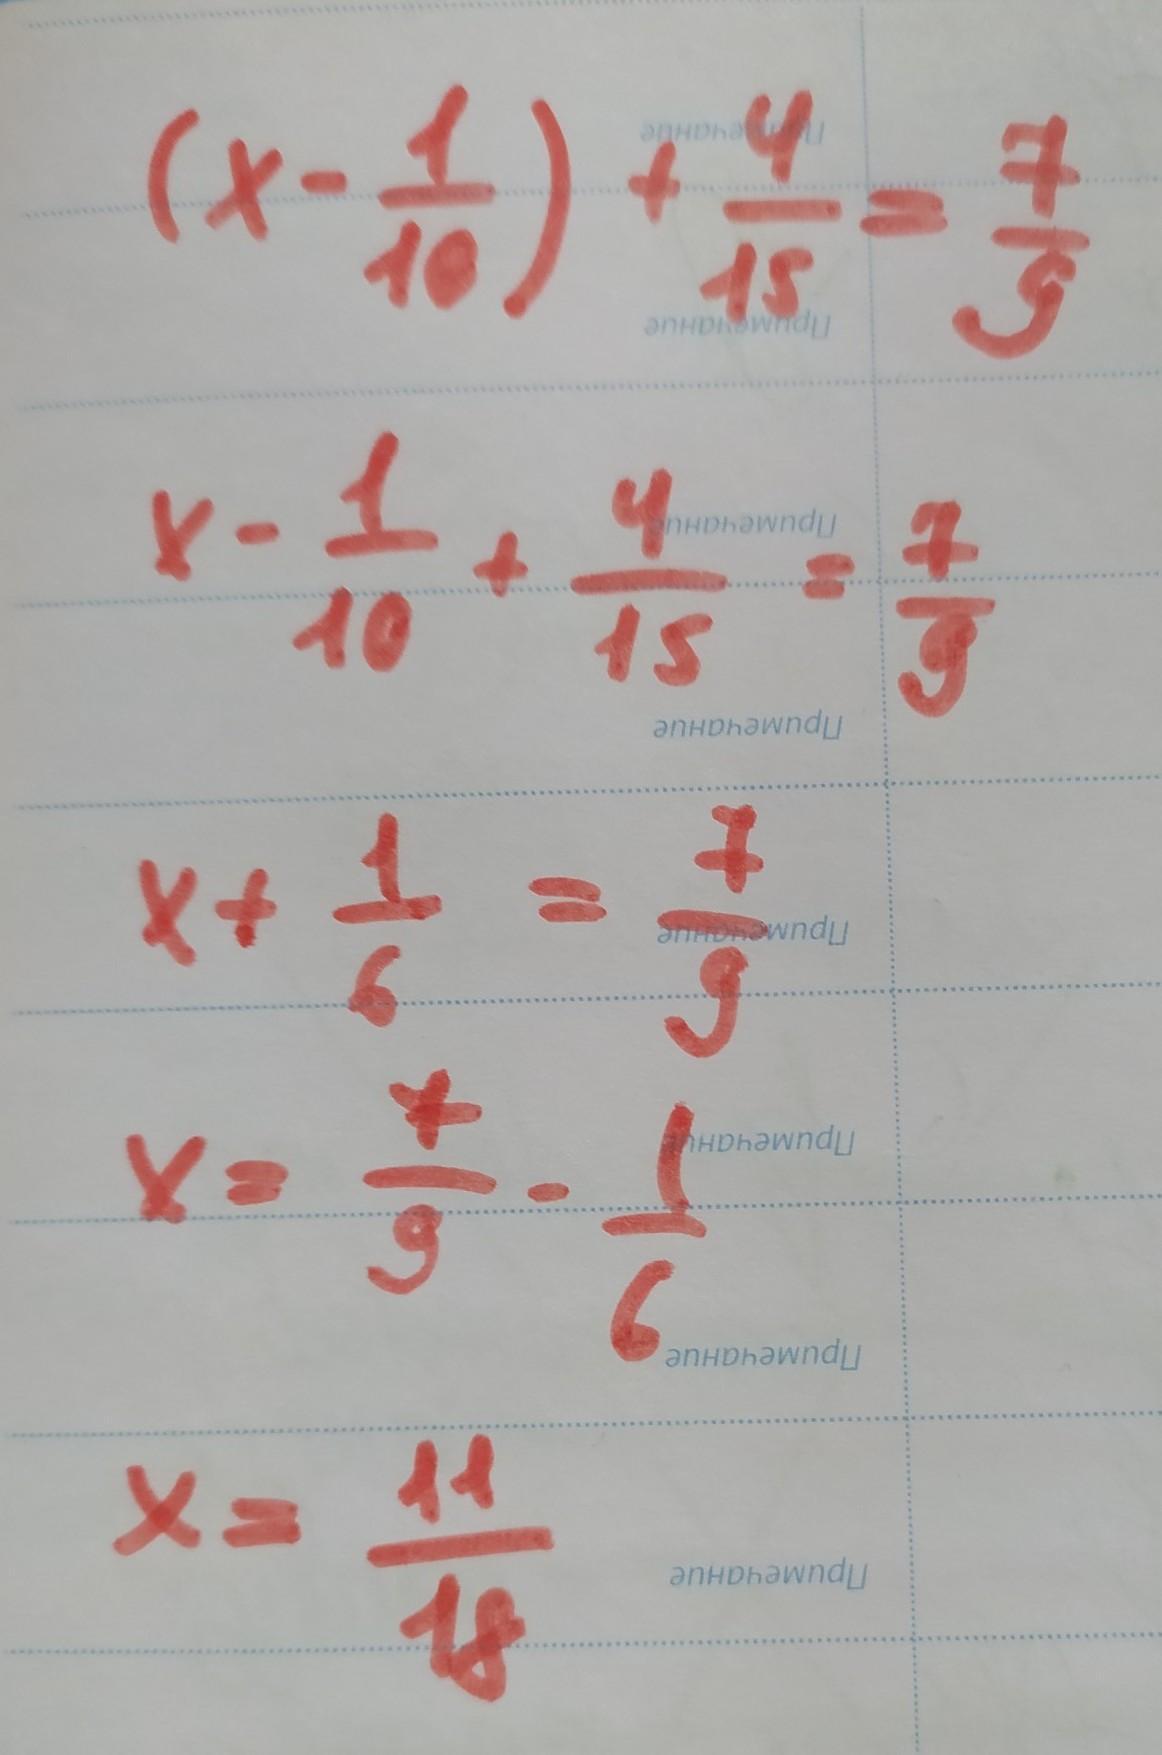 (x - 1/10) + 4/15 = 7/9
Примечание
Примечание
x - 1/10 + 4/15 = 7/9
Примечание
Примечание
x + 1/6 = 7/9
Примечание
x = 7/9 - 1/6
Примечание
Примечание
x = 11/18
Примечание